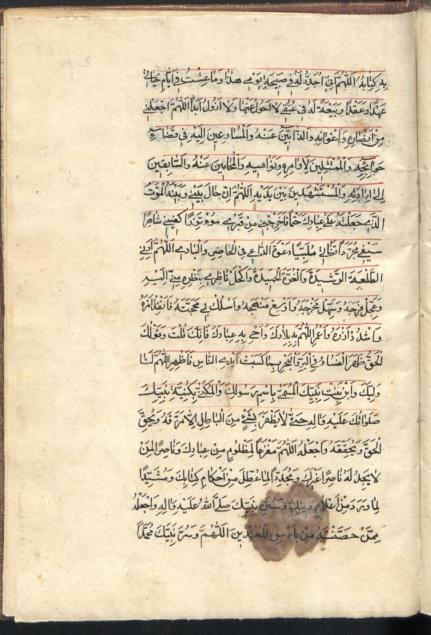 به كتابه اللهم اني اجدد له في صبيحة يومي هذا وما عشت في ايام حياتي
عهدا وعقدا وبيعة له في عنقي لا احول عنها ولا ازول ابدا اللهم اجعلني
من انصاره واعوانه والذابين عنه والمسارعين اليه في قضاء
حوائجه والممتثلين لاوامره ونواهيه والمحامين عنه والسابقين
الى ارادته والمستشهدين بين يديه اللهم ان حال بيني وبينه الموت
الذي جعلته على عبادك حتما فاخرجني من قبري مؤتزرا كفني شاهرا
سيفي مجردا قناتي ملبيا دعوة الداعي في الحاضر والبادي اللهم ارني
الطلعة الرشيدة والغرة الحميدة واكحل ناظري بنظرة مني اليه
وعجل فرجه وسهل مخرجه واوسع منهجه واسلك بي محجته فانفذ امره
واشدد ازره واعمر اللهم به بلادك واحي به عبادك فانك قلت وقولك
الحق ظهر الفساد في البر والبحر بما كسبت ايدي الناس فاظهر اللهم لنا
وليك وابن بنت نبيك المسمى باسم رسولك والمكنى بكنية نبيك
صلواتك عليه واله حتى لا يظفر بشيء من الباطل الا مزقه ويحق
الحق ويحققه واجعله اللهم مفزعا للمظلوم من عبادك وناصرا لمن
لا يجد له ناصرا غيرك ومجددا لما عطل من احكام كتابك ومشيدا
لما ورد من اعلام دينك وسنن نبيك صلى الله عليه واله واجعله
ممن حصنته من بأس المعتدين اللهم وسر نبيك محمدا